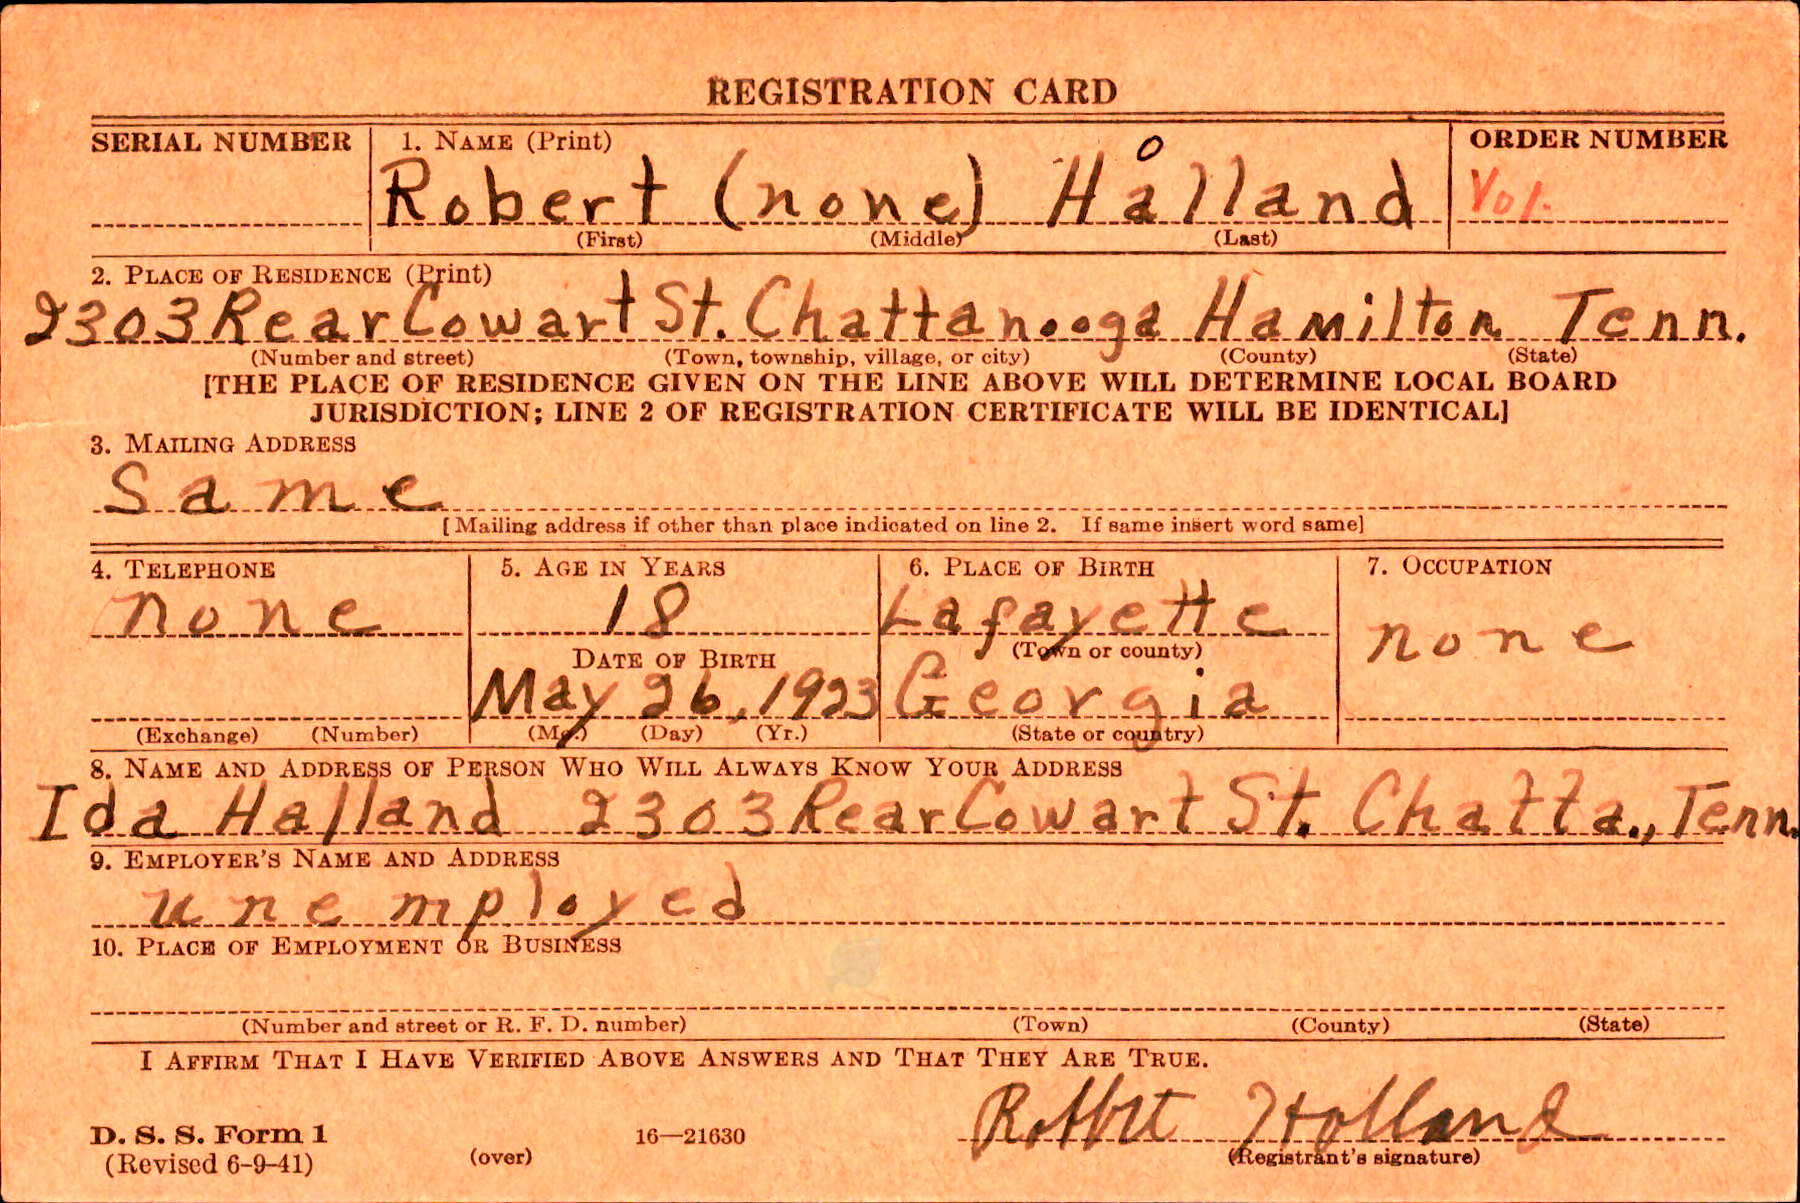 REGISTRATION CARD
SERIAL NUMBER
1. NAME (Print)
ORDER NUMBER
o
Robert (none) Halland
Vol.
(First) (Middle) (Last)
2. PLACE OF RESIDENCE (Print)
2303 Rear Cowart St. Chattanooga Hamilton Tenn.
(Number and street) (Town, township, village, or city) (County) (State)
[THE PLACE OF RESIDENCE GIVEN ON THE LINE ABOVE WILL DETERMINE LOCAL BOARD
JURISDICTION; LINE 2 OF REGISTRATION CERTIFICATE WILL BE IDENTICAL]
3. MAILING ADDRESS
Same
[Mailing address if other than place indicated on line 2. If same insert word same]
4. TELEPHONE
none
(Exchange) (Number)
5. AGE IN YEARS
18
DATE OF BIRTH
May 26, 1923
(Mo.) (Day) (Yr.)
6. PLACE OF BIRTH
Lafayette
(Town or county)
Georgia
(State or country)
7. OCCUPATION
none
8. NAME AND ADDRESS OF PERSON WHO WILL ALWAYS KNOW YOUR ADDRESS
Ida Halland 2303 Rear Cowart St. Chatta., Tenn.
9. EMPLOYER'S NAME AND ADDRESS
unemployed
10. PLACE OF EMPLOYMENT OR BUSINESS
(Number and street or R. F. D. number) (Town) (County) (State)
I AFFIRM THAT I HAVE VERIFIED ABOVE ANSWERS AND THAT THEY ARE TRUE.
Robert Holland
D. S. S. Form 1
(Revised 6-9-41)
(over)
16—21630
(Registrant's signature)